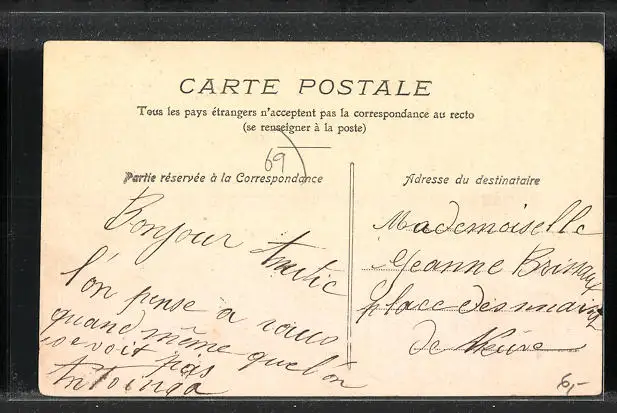 CARTE POSTALE
Tous les pays étrangers n'acceptent pas la correspondance au recto
(se renseigner à la poste)
69
Partie réservée à la Correspondance
Adresse du destinataire
Bonjour
l'on pense a vous
quand même que l'on
se voit pas
Mademoiselle
Jeanne
place des
de
6,-